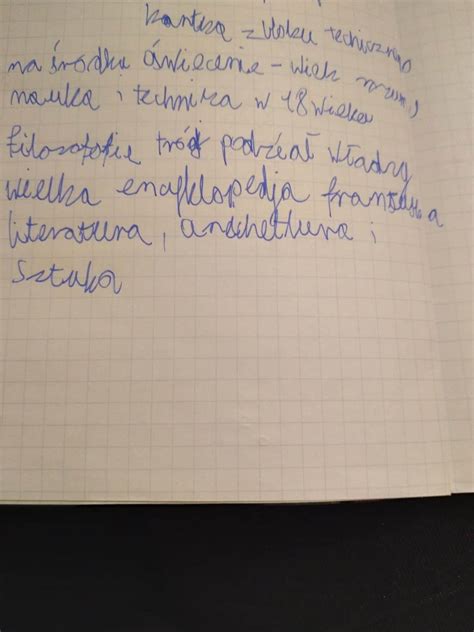 kartka z bloku technicznego
na środku óświecenie - wiek rozumu
nauka i technika w 18 wieku
filozofofie trój podzéał władzy
wielka encyklopedja francuska
literatura, archetktura i
sztuka